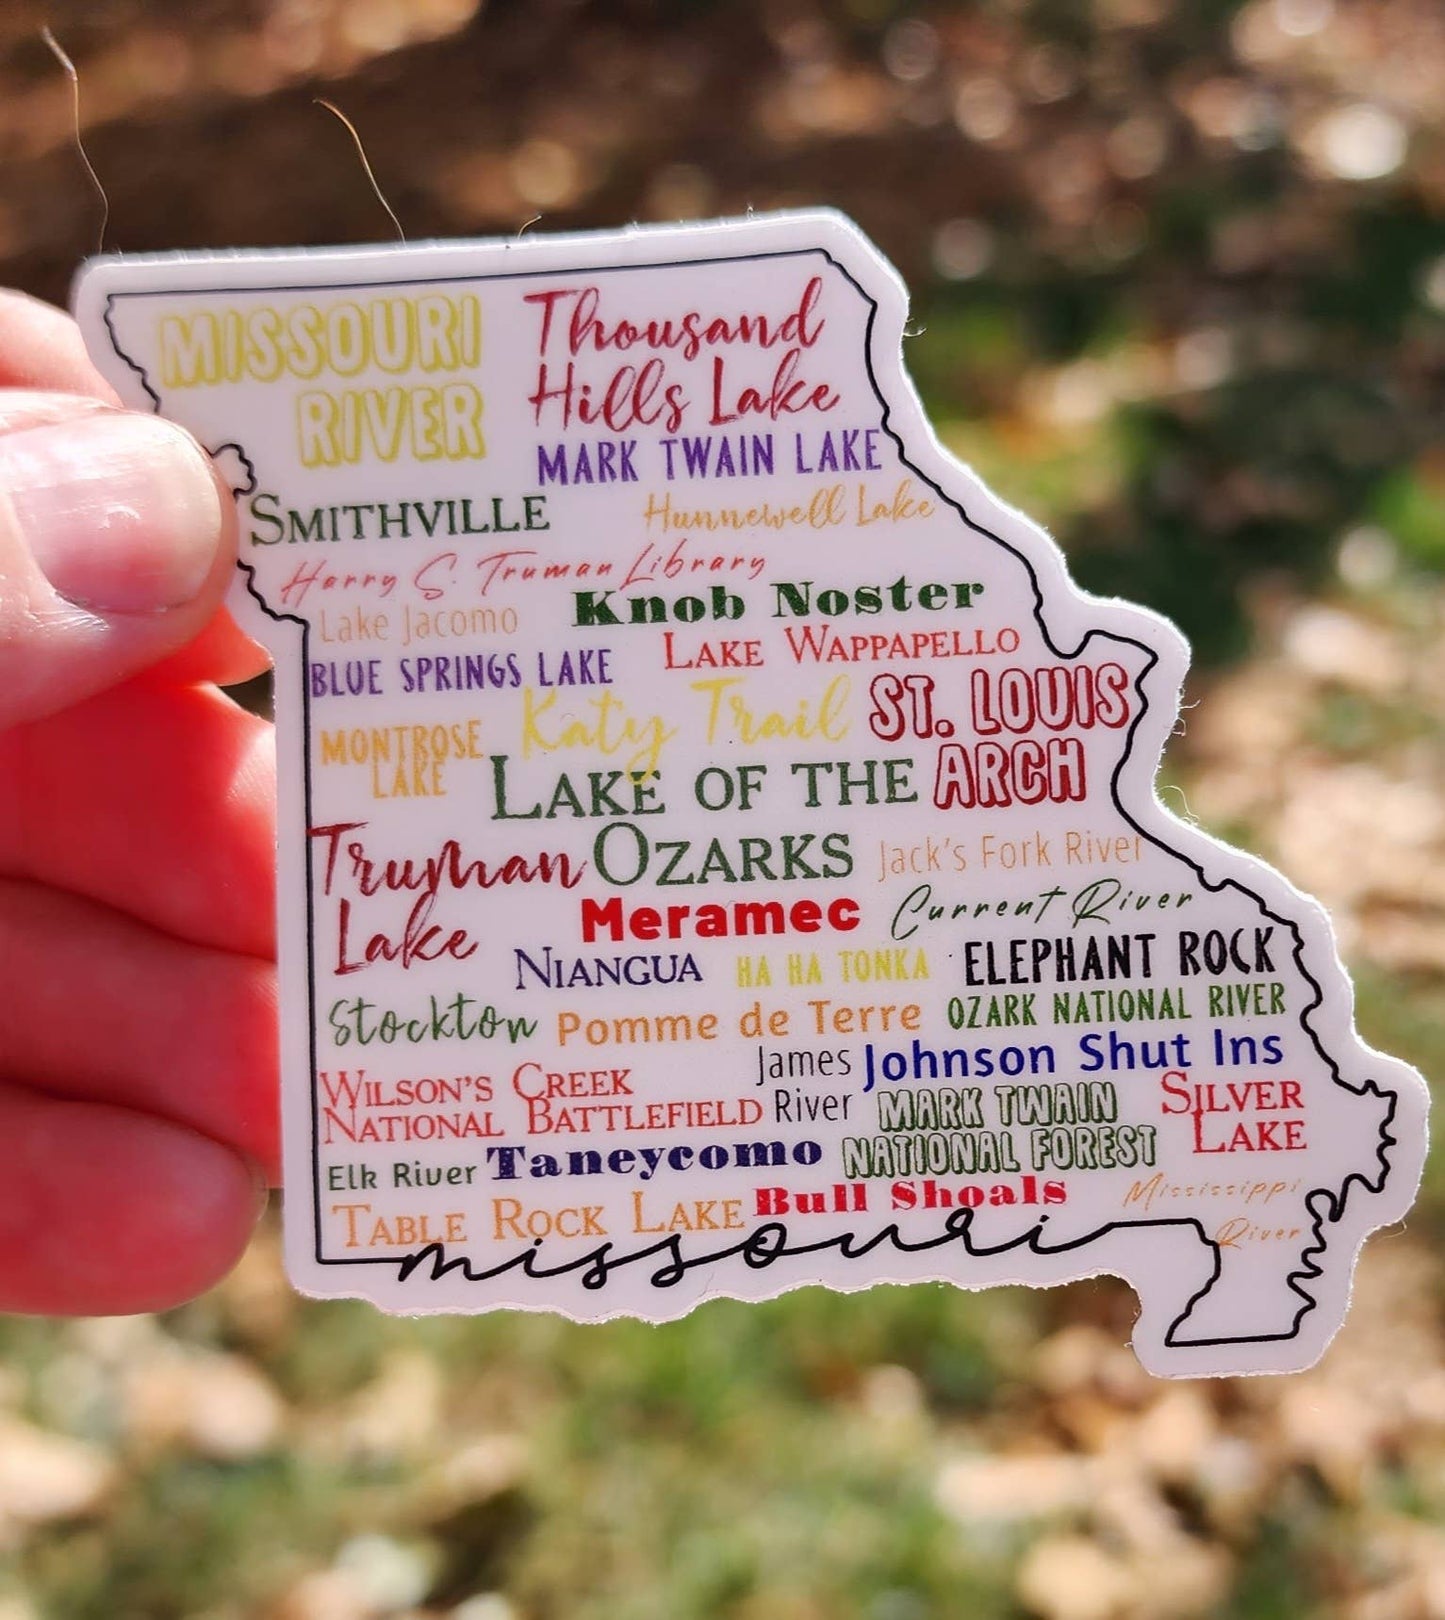 MISSOURI
RIVER
Thousand
Hills Lake
MARK TWAIN LAKE
SMITHVILLE
Hunnewell Lake
Harry S. Truman Library
Lake Jacomo
Knob Noster
BLUE SPRINGS LAKE
LAKE WAPPAPELLO
MONTROSE
LAKE
Katy Trail
ST. LOUIS
ARCH
LAKE OF THE
OZARKS
Truman
Lake
Jack's Fork River
Meramec
Current River
NIANGUA
HA HA TONKA
ELEPHANT ROCK
Stockton
Pomme de Terre
OZARK NATIONAL RIVER
James
River
Johnson Shut Ins
WILSON'S CREEK
NATIONAL BATTLEFIELD
MARK TWAIN
NATIONAL FOREST
SILVER
LAKE
Elk River
Taneycomo
TABLE ROCK LAKE
Bull Shoals
Mississippi
River
missouri